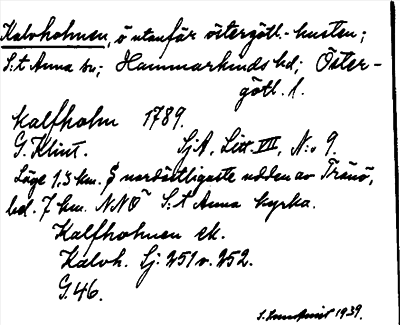 Kalvholmen, ö utanför östergötl.-kusten;
S:t Anna sn; Hammarkinds hd; Öster-
götl. l.
Kalfholm 1789.
G. Klint. SjA, Litt. VII, N:o 9.
Läge 1.3 km. S nordöstligaste udden av Tränö,
bel. 7 km. NNO S:t Anna kyrka.
Kalfholmen ek.
Kalvh. Sj: 251 v. 252.
G. 46.
S. 1939.